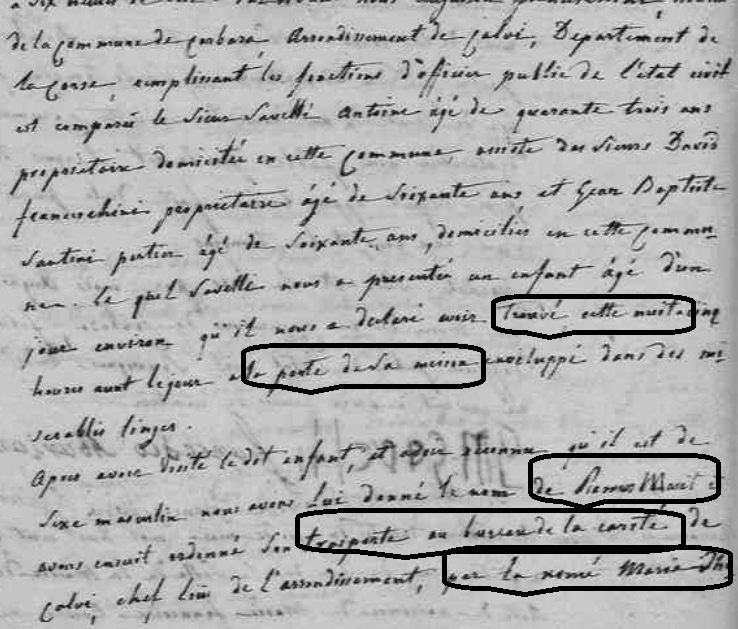 de la Commune de Corbara, Arrondissement de Calvi, Département de
la Corse, remplissant les fonctions d'officier public de l'état civil
est comparu le sieur Savelli Antoine âgé de quarante trois ans
propriétaire domicilié en cette Commune, assisté des sieurs David
franceschini propriétaire âgé de soixante ans, et Gean Baptiste
Santini portier âgé de soixante ans, domiciliés en cette Commu-
ne. le quel Savelli nous a présenté un enfant âgé d'un
jour environ qu'il nous a déclaré avoir trouvé cette nuit a cinq
heures avant le jour a la porte de sa meison enveloppé dans des mi
serables linges.
Apres avoir visité le dit enfant, et avoir reconnu qu'il est de
sexe masculin nous avons lui donné le nom de Maret
avons ensuit ordonné son trasporte au bureau de la carité de
Calvi, chef lieu de l'arrondissement, par la nomé Marie